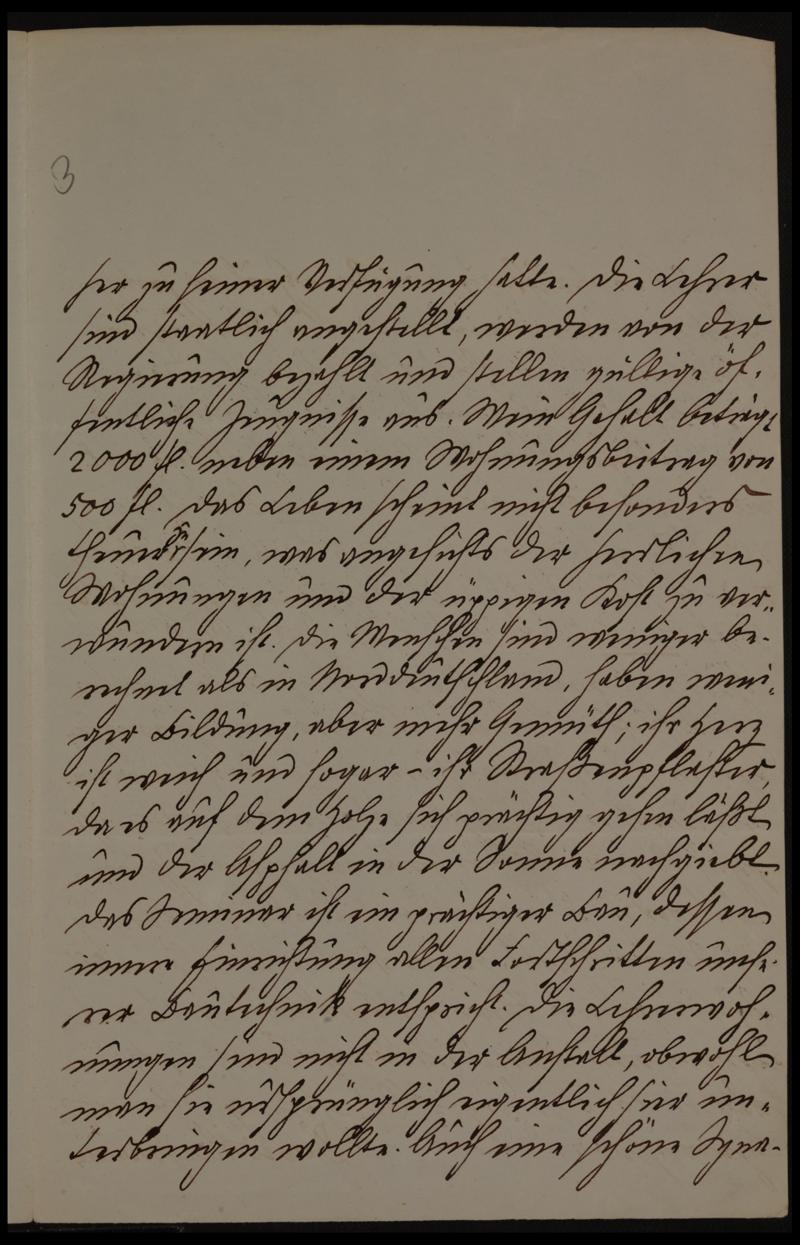 3
her zu seiner Verfügung hatte. Die Lehrer
sind staatlich angestellt, werden von der
Regierung bezahlt und stellen gültige öf-
fentliche Zeugnisse aus. Mein Gehalt beträgt
2000 fl. neben einem Wohnungsbeitrag von
500 fl. Das Leben scheint nicht besonders
theuer zu sein, was angesichts der herrlichen
Wohnungen und der üppigen Kost zu ver-
wundern ist. Die Menschen sind weniger be-
rechnet als in Norddeutschland, haben weni-
ger Bildung, aber mehr Gemüth; ihr Herz
ist weich und sogar – ihr Straßenpflaster,
da es auf dem Holze sich prächtig gehen läßt
und der Asphalt in der Sonne nachgiebt.
Das Seminar ist ein prächtiger Bau, dessen
innere Einrichtung allen Fortschritten unse-
rer Bautechnik entspricht. Die Lehrerwoh-
nungen sind nicht in der Anstalt, obwohl
man sie ursprünglich eigentlich hier un-
terbringen wollte. Auch eine schöne Syna-